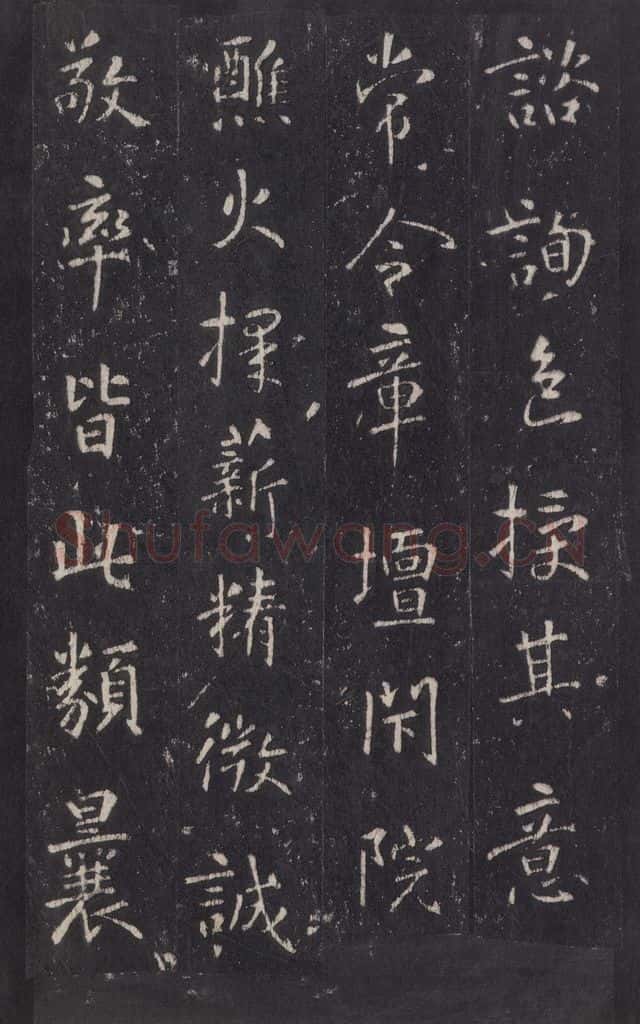 諮詢色授其意
常令章壇閇院
醮火採薪精微誠
敬率皆此類曩
Shufawang.cn